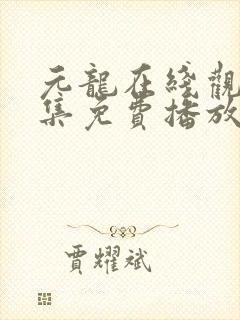 元龍在綫觀
集免費播放
賈耀斌